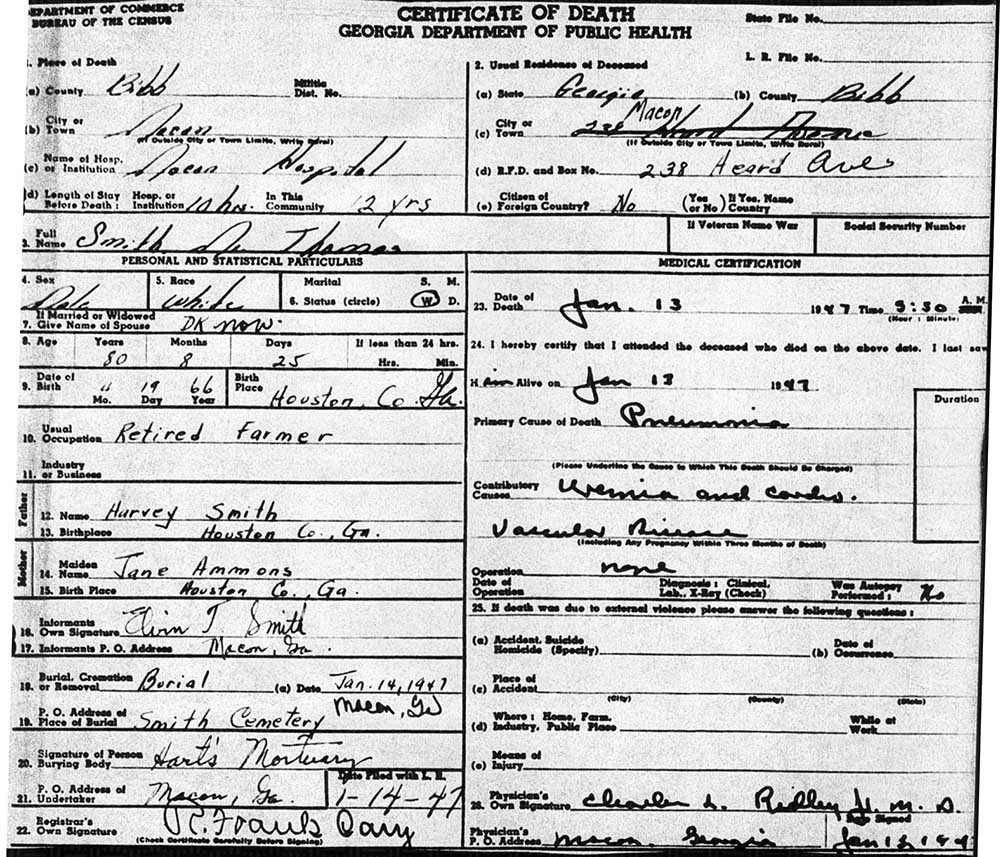 DEPARTMENT OF COMMERCE
BUREAU OF THE CENSUS
CERTIFICATE OF DEATH
GEORGIA DEPARTMENT OF PUBLIC HEALTH
State File No.
L. R. File No.
1. Place of Death
(a) County Bibb Militia Dist. No.
City or
(b) Town Macon
(If Outside City or Town Limits, Write Rural)
Name of Hosp.
(c) or Institution Macon Hospital
(d) Length of Stay Before Death: Hosp. or Institution 10 hrs. In This Community 12 yrs
2. Usual Residence of Deceased
(a) State Georgia (b) County Bibb
Macon
City or
(c) Town 238
(If Outside City or Town Limits, Write Rural)
(d) R.F.D. and Box No. 238 Heard Ave
Citizen of
(e) Foreign Country? No (Yes or No) If Yes, Name Country
Full
3. Name Smith Thomas
If Veteran Name War
Social Security Number
PERSONAL AND STATISTICAL PARTICULARS
4. Sex Male
5. Race White
Marital S. M.
6. Status (circle) W D.
If Married or Widowed
7. Give Name of Spouse DK now.
8. Age Years Months Days If less than 24 hrs.
80 8 25 Hrs. Min.
Date of
9. Birth 4 19 66
Mo. Day Year
Birth Place Houston, Co. Ga.
Usual
10. Occupation Retired Farmer
Industry
11. or Business
Father
12. Name Harvey Smith
13. Birthplace Houston Co., Ga.
Mother
Maiden
14. Name Jane Ammons
15. Birth Place Houston Co., Ga.
Informants
16. Own Signature Elvin T Smith
17. Informants P. O. Address Macon, Ga.
Burial, Cremation
18. or Removal Burial (a) Date Jan. 14, 1947
P. O. Address of Macon, Ga
19. Place of Burial Smith Cemetery
Signature of Person
20. Burying Body Hart's Mortuary
P. O. Address of
21. Undertaker Macon, Ga.
Date Filed with L. R.
1-14-47
Registrar's
22. Own Signature Frank Cary
(Check Certificate Carefully Before Signing)
MEDICAL CERTIFICATION
23. Date of Death Jan. 13 1947 Time 3:30 A. M.
(Hour : Minute)
24. I hereby certify that I attended the deceased who died on the above date. I last saw
H im Alive on Jan 13 1947
Duration
Primary Cause of Death Pneumonia
(Please Underline the Cause to Which This Death Should Be Charged)
Contributory
Causes Uremia and cardio.
Vascular Disease
(Including Any Pregnancy Within Three Months of Death)
Operation none
Date of Operation
Diagnosis: Clinical, Lab., X-Ray (Check)
Was Autopsy Performed: No
25. If death was due to external violence please answer the following questions:
(a) Accident, Suicide Homicide (Specify)
(b) Date of Occurrence
Place of
(c) Accident
(City) (County) (State)
Where: Home, Farm,
(d) Industry, Public Place
While at Work
Means of
(e) Injury
Physician's
26. Own Signature Charles L. Ridley Jr. M. D.
Date Signed
Physician's
P. O. Address Macon, Georgia Jan 13 194